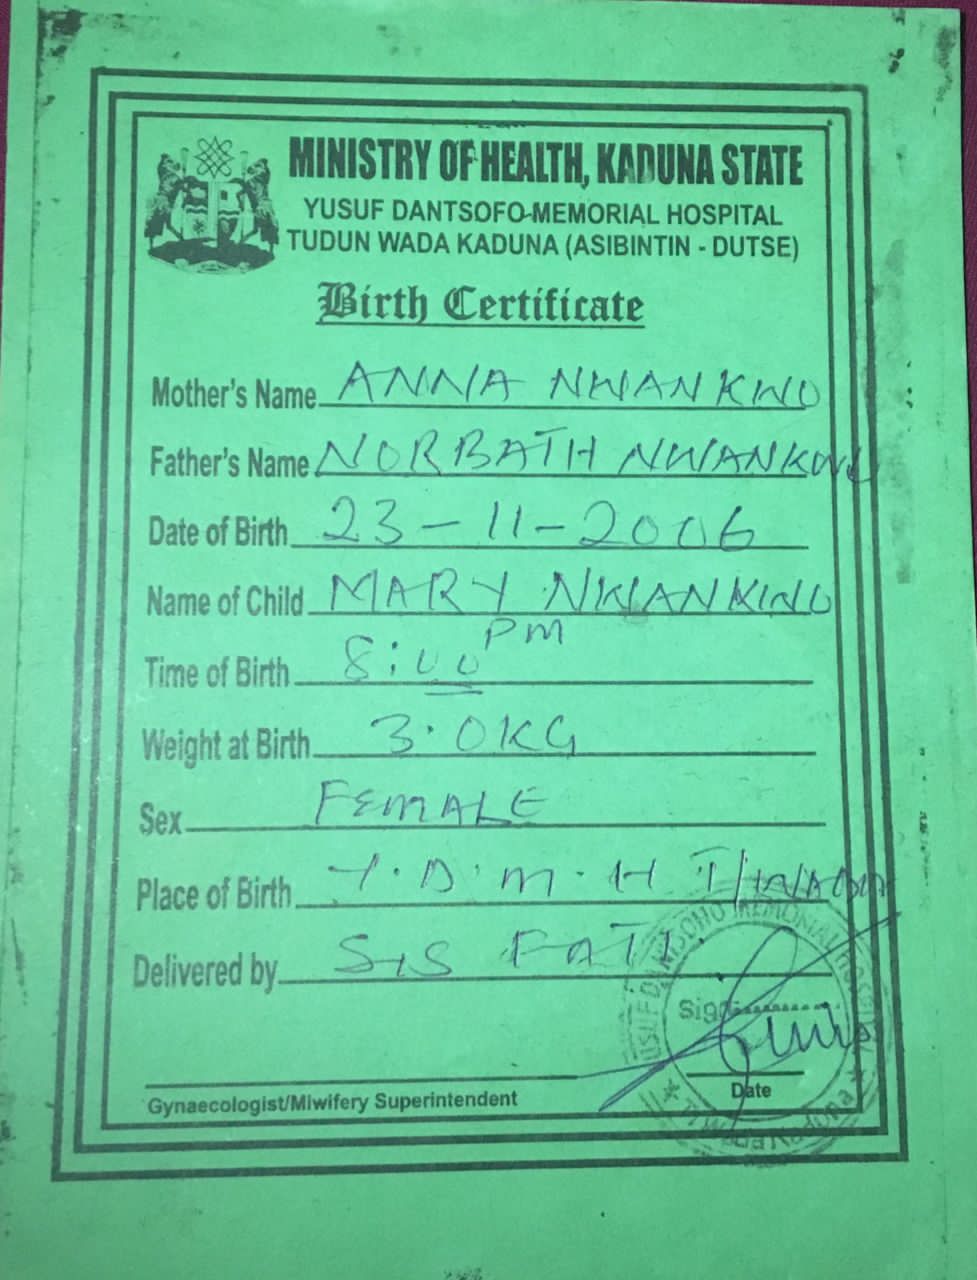 MINISTRY OF HEALTH, KADUNA STATE
YUSUF DANTSOFO-MEMORIAL HOSPITAL
TUDUN WADA KADUNA (ASIBINTIN - DUTSE)
Birth Certificate
Mother's Name ANNA NWANKWO
Father's Name NORBATH NWANKWO
Date of Birth 23-11-2006
Name of Child MARY NWANKWO
Time of Birth 8:00 PM
Weight at Birth 3.0KG
Sex FEMALE
Place of Birth Y.D.M.H T/WADA
Delivered by SIS FATI
YUSUF DANTSOHO MEMORIAL HOSPITAL
Sign
Gynaecologist/Miwifery Superintendent
Date